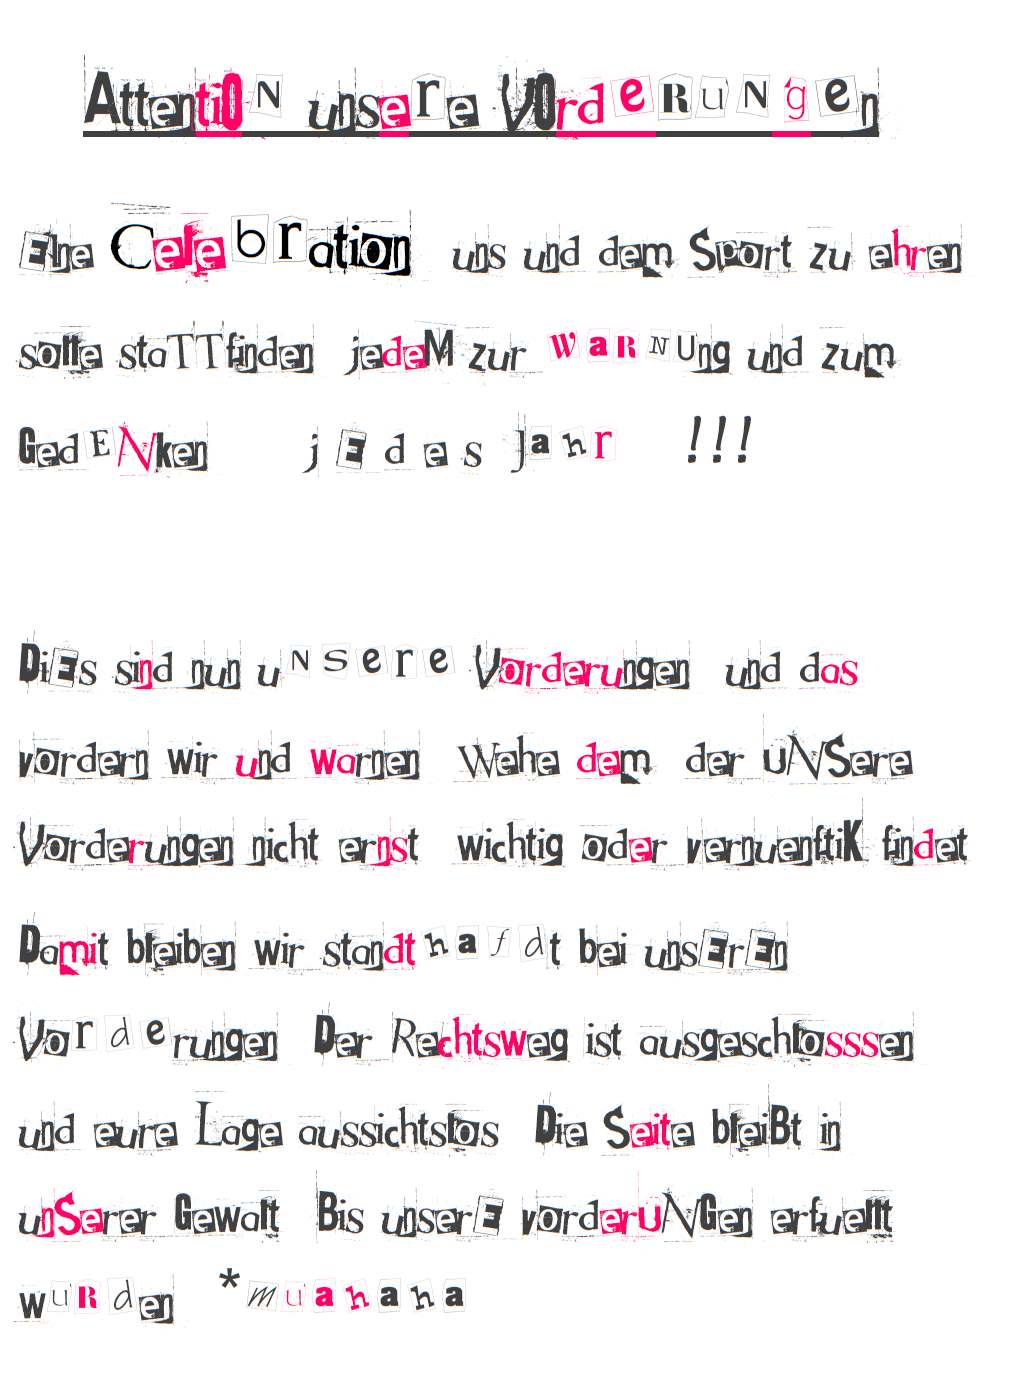 AttentiON unsere VOrdeRUNgen
EIne CeleBration uns und dem Sport zu ehren
sollte staTTfinden jedeM zur WaRNUng und zum
GedENken jEdes Jahr !!!
DiEs sind nun uNSere Vorderungen und das
vordern wir und warnen Wehe dem der UNSere
Vorderungen nicht ernst wichtig oder vernuenftiK findet
Damit bleiben wir standthafdt bei unsErEn
Vorderungen Der Rechtsweg ist ausgeschlosssen
und eure Lage aussichtslos Die Seite bleiBt in
unSerer Gewalt Bis unserE vorderUNGen erfuellt
wuRden *muahaha